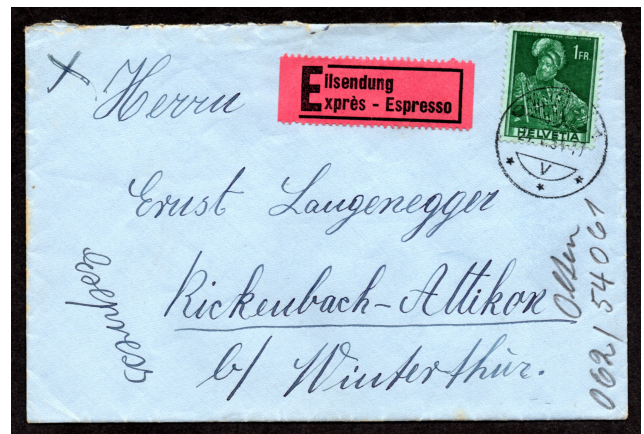 Herrn
Eilsendung
Exprès - Espresso
1 FR.
HELVETIA
V
Ernst Langenegger
Rickenbach-Attikon
b/ Winterthur.
Express
Olten
062/54061